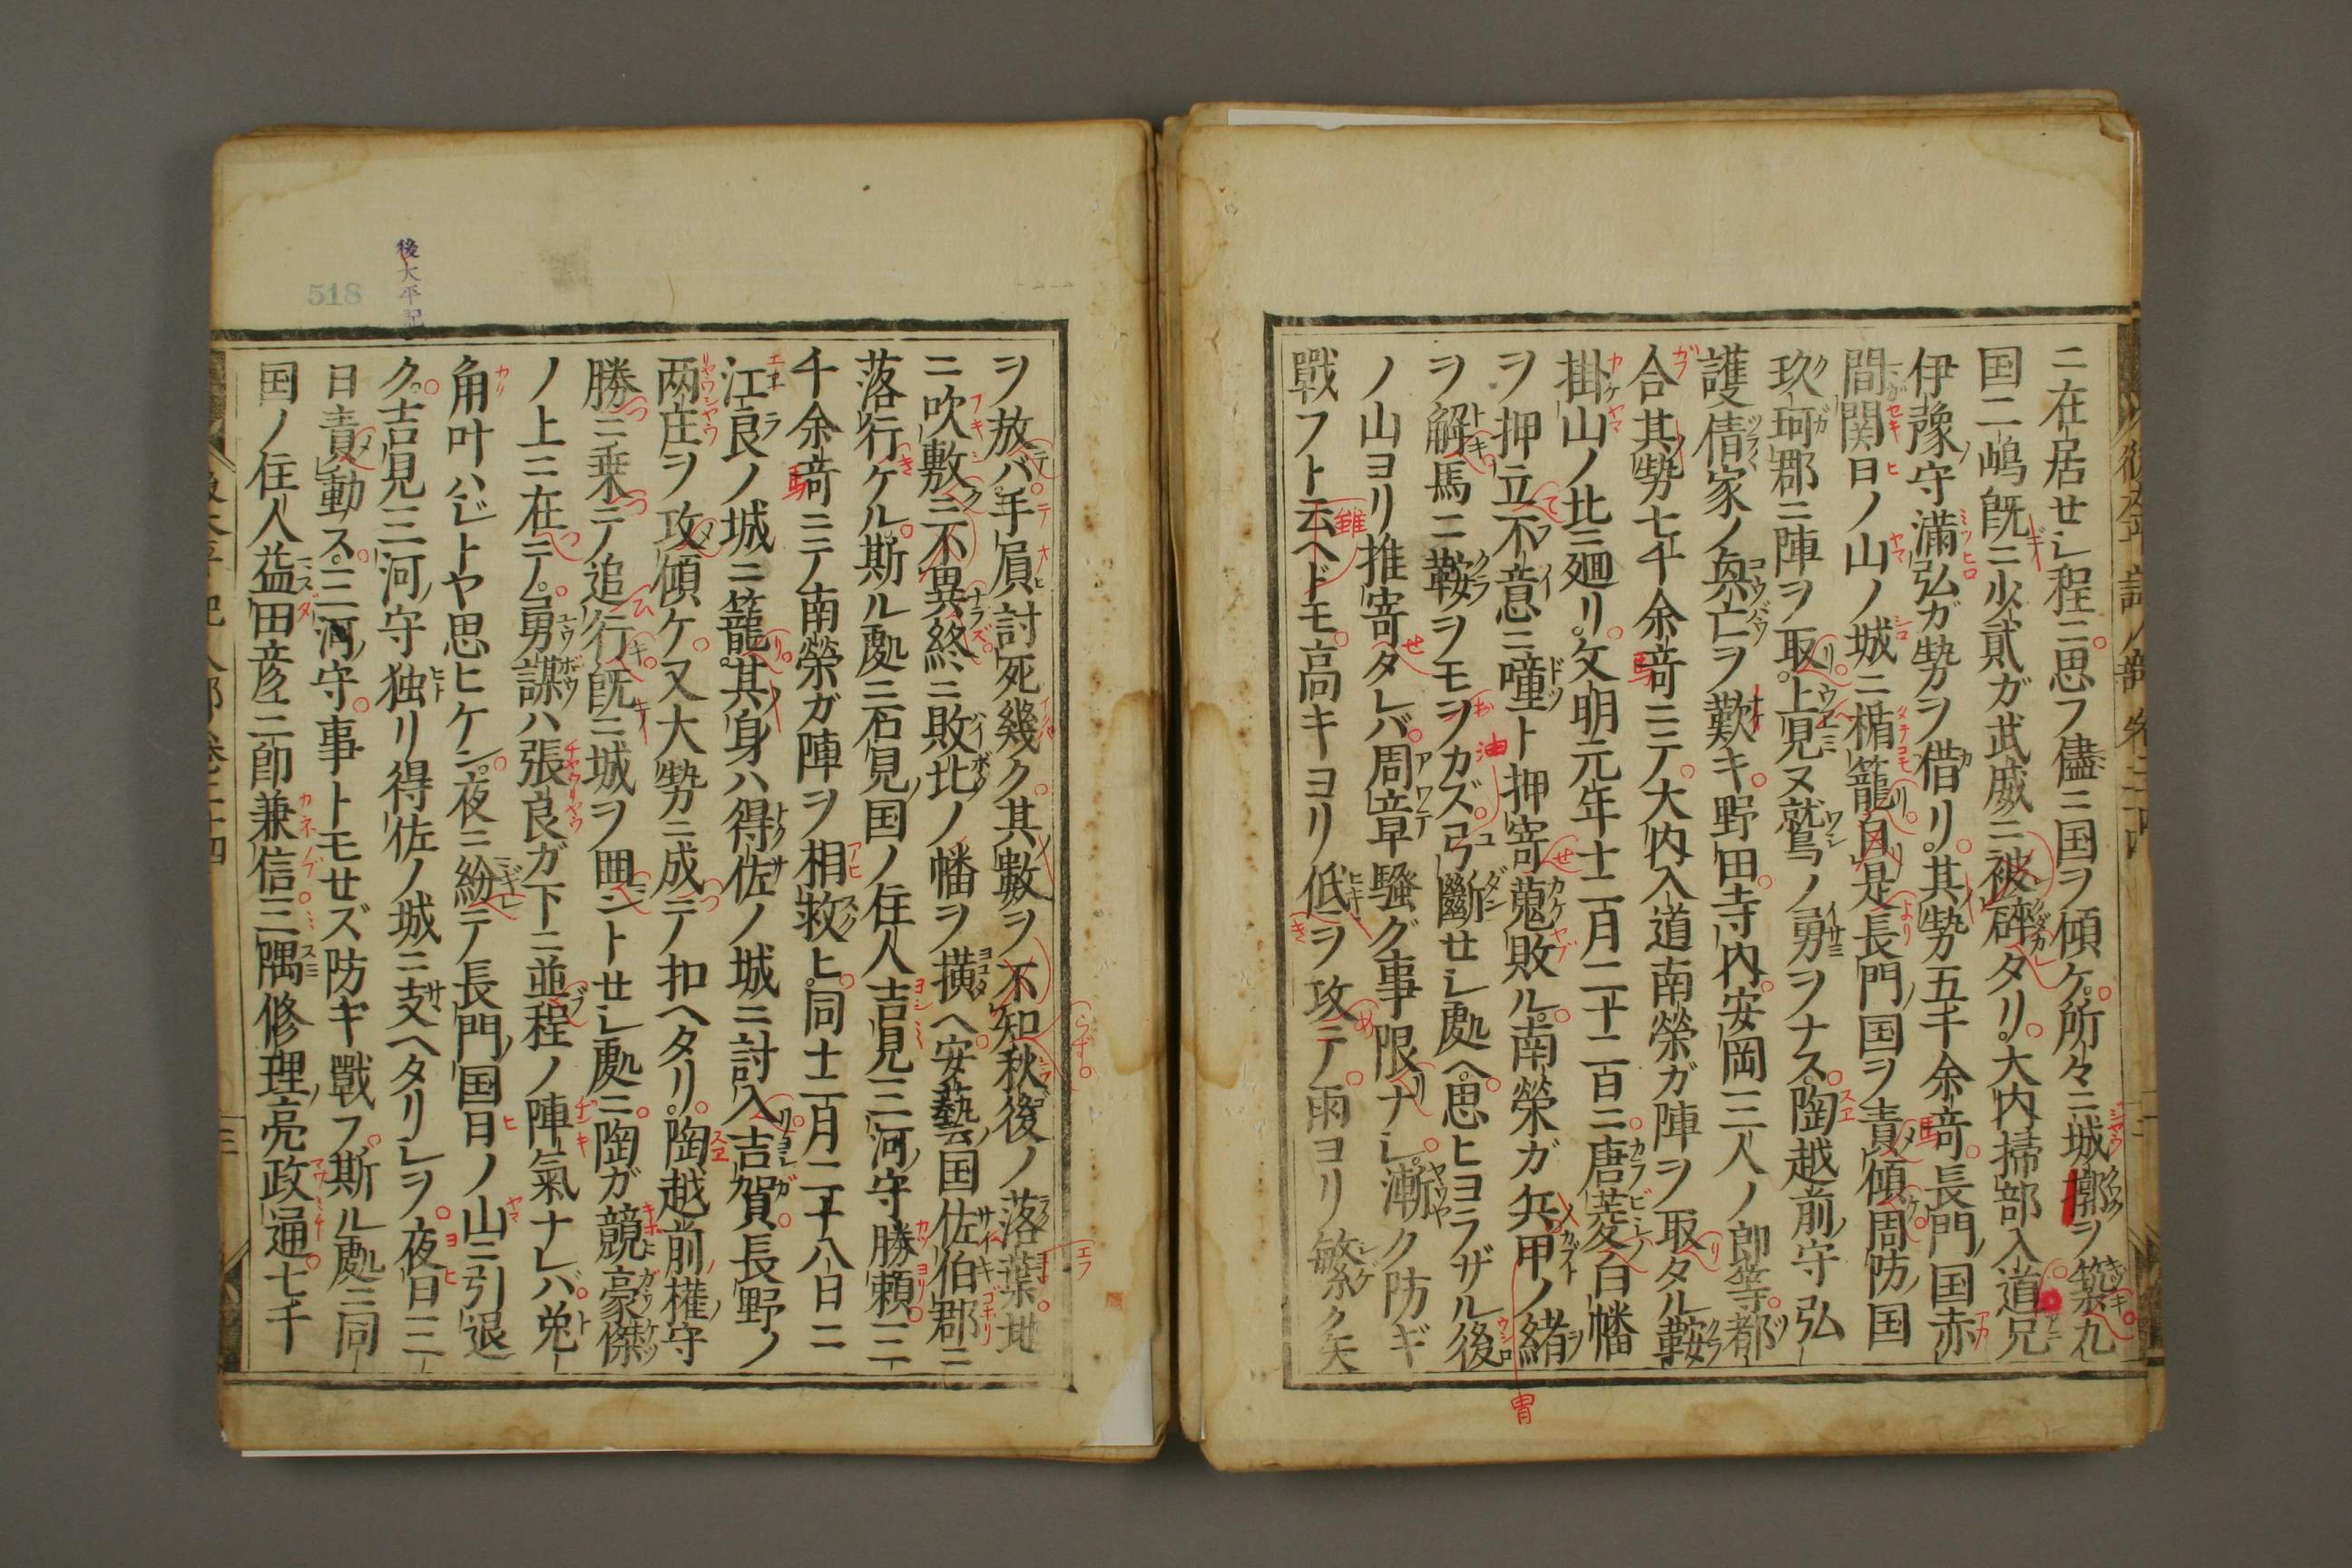 ニ在居セシ程ニ思フ儘ニ国ヲ傾ケ所々ニ城郭ヲ築九
国二嶋既ニ少貳ガ武威ニ被碎タリ大内掃部入道兄
伊豫守滿弘ガ勢ヲ借リ其勢五千余竒長門国赤
間関日ノ山ノ城ニ楯籠自是長門国ヲ責傾周防国
玖珂郡ニ陣ヲ取上見ヌ鷲ノ勇ヲナス陶越前守弘
護倩家ノ興亡ヲ歎キ野田寺内安岡三人ノ郎等都
合其勢七千余竒ニテ大内入道南榮ガ陣ヲ取タル鞍
掛山ノ北ニ廻リ文明元年十二月二十二日ニ唐菱ノ白幡
ヲ押立不意ニ噇ト押寄蒐敗ル南榮ガ兵甲ノ緒
ヲ解馬ニ鞍ヲモヲカズ弓斷セシ処ヘ思ヒヨラザル後
ノ山ヨリ推寄タレバ周章騒グ事限ナシ漸ク防ギ
戰フト云ヘドモ高キヨリ低ヲ攻テ雨ヨリ繁ク矢
ヲ放バ手負討死幾ク其數ヲ不知秋後ノ落葉地
ニ吹敷ニ不異終ニ敗北ノ幡ヲ横ヘ安藝国佐伯郡ニ
落行ケル斯ル處ニ石見国ノ住人吉見三河守勝頼三
千余竒ニテ南榮ガ陣ヲ相救ヒ同十二月二十八日ニ
江良ノ城ニ籠其身ハ得佐ノ城ニ討入吉賀長野ノ
两庄ヲ攻傾ケ又大勢ニ成テ扣ヘタリ陶越前權守
勝ニ乗テ追行既ニ城ヲ囲ントセシ處ニ陶ガ競豪傑
ノ上ニ在テ勇謀ハ張良ガ下ニ並程ノ陣氣ナレバ兎
角叶ハジトヤ思ヒケン夜ニ紛テ長門国日ノ山ニ引退
ク吉見三河守独リ得佐ノ城ニ支ヘタリシヲ夜日三
日責動ス三河守事トモセズ防ギ戰フ斯ル處ニ同
国ノ住人益田彦三郎兼信三隅修理亮政通七千
後太平記
518